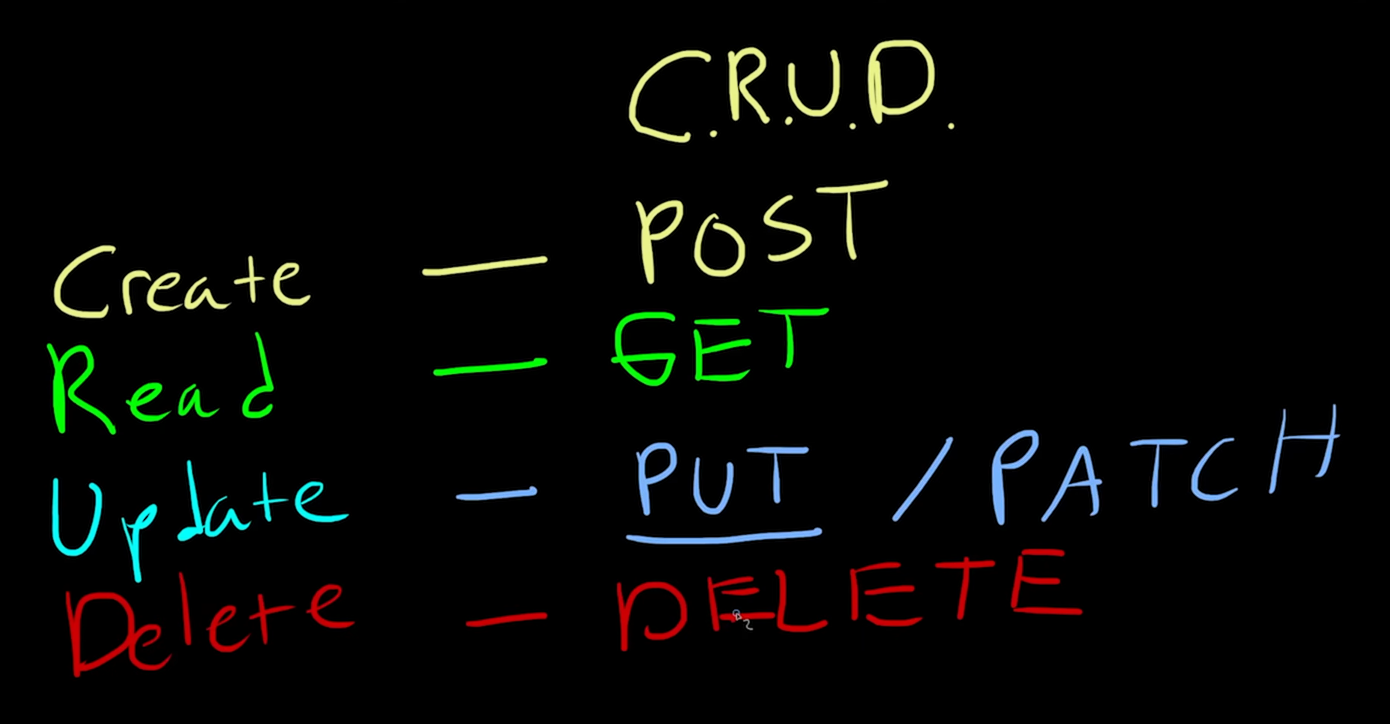 C.R.U.D.
Create — POST
Read — GET
Update — PUT / PATCH
Delete — DELETE